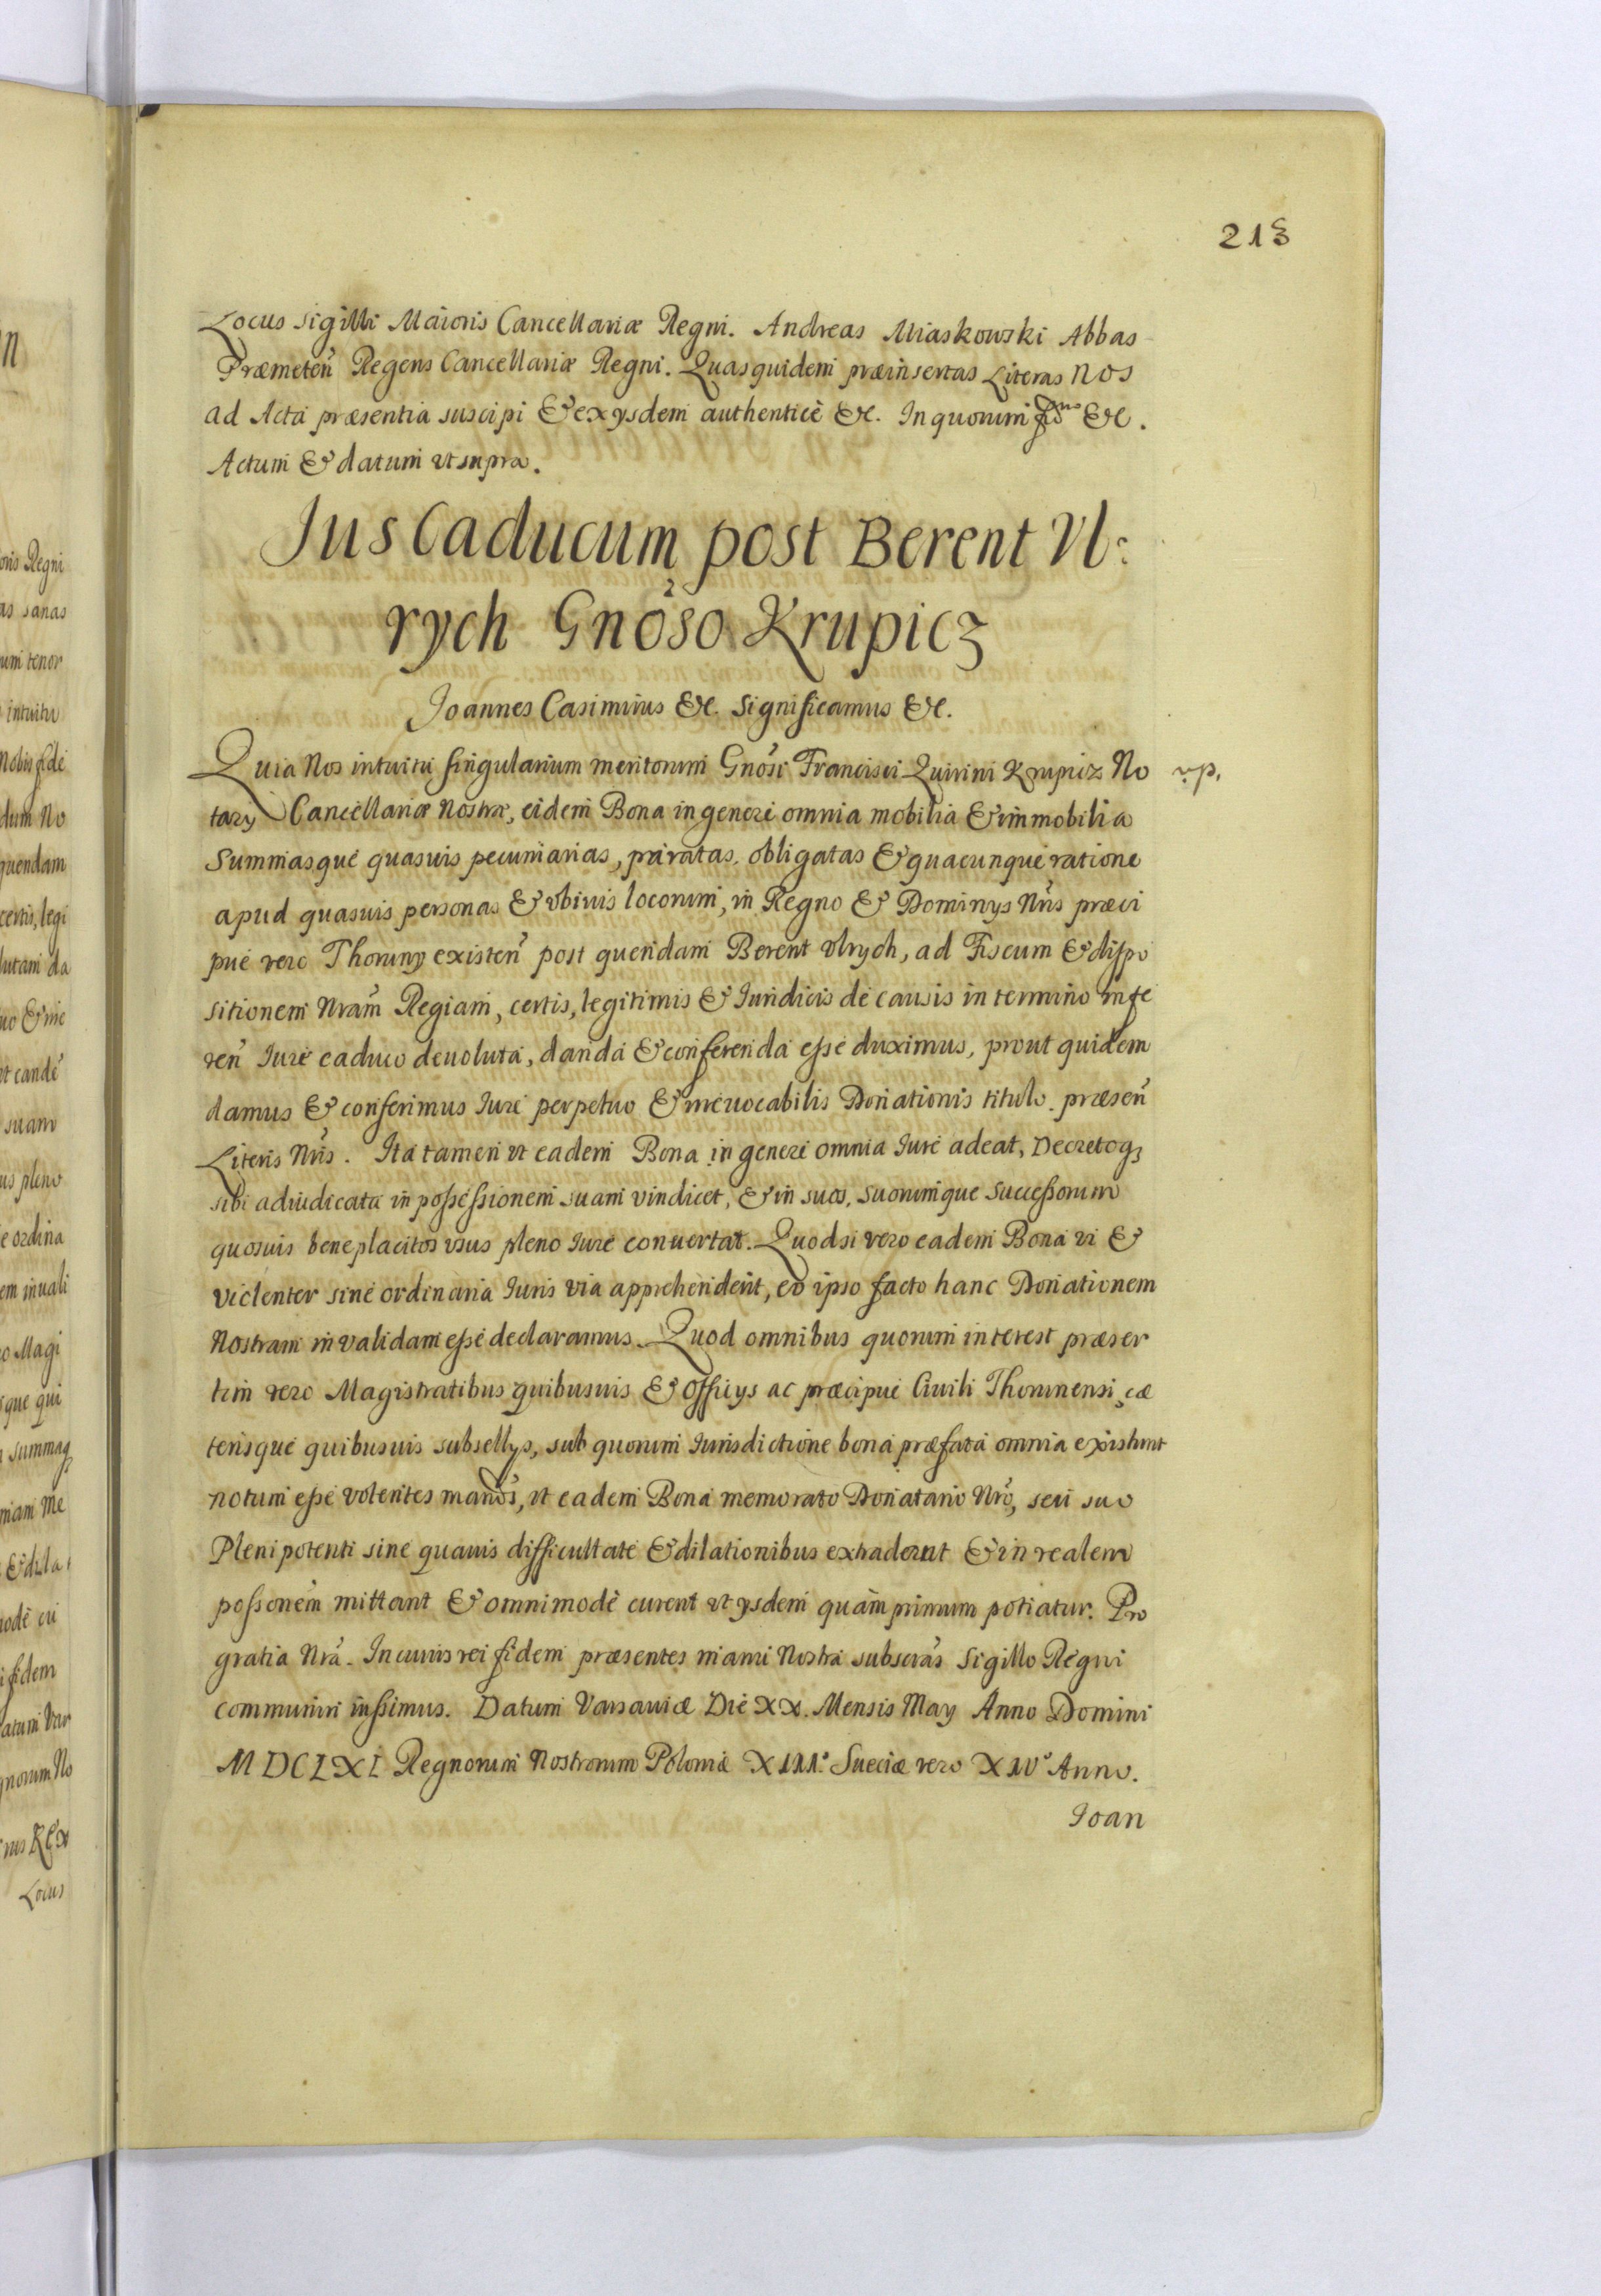 213
Locus sigilli Maioris Cancellariæ Regni. Andreas Miaskowski Abbas
Præmeteñ Regens Cancellariæ Regni. Quasquidem præinsertas Literas Nos
ad Acta præsentia suscipi & exysdem authenticè &c. In quorum &c.
Actum & datum vt supra.
Jus Caducum post Berent Vl:
rych Gnoso Krupicz
Joannes Casimirus &c. Significamus &c.
Quia Nos intuitu singularium meritorum Gnosi Francisci Quirini Krupicz No
tary Cancellariæ Nostræ, eidem Bona in genere omnia mobilia & immobilia
Summasque quasuis pecuniarias, paratas, obligatas & quacunque ratione
apud quasuis personas & vbiuis locorum, in Regno & Dominys Nris præci
pue vero Thoruny existeñ post quendam Berent Vlrych, ad Fiscum & dispo
sitionem Nram Regiam, certis, legitimis & Iuridicis de causis in termino infe
reñ Iure caduco deuoluta, danda & conferenda esse duximus, prout quidem
damus & conferimus Iure perpetuo & irreuocabilis Donationis titulo præseñ
Literis Nris. Ita tamen vt eadem Bona in genere omnia Iure adeat, Decretoq3
sibi adiudicata in possessionem suam vindicet, & in suos, suorumque Successorum
quosuis beneplacitos vsus pleno Iure conuertat. Quodsi vero eadem Bona vi &
violenter sine ordinaria Iuris via apprehenderit, eo ipso facto hanc Donationem
Nostram inualidam esse declaramus. Quod omnibus quorum interest præser
tim vero Magistratibus quibusuis & Officys ac præcipue Ciuili Thorunensi, cæ
terisque quibusuis subsellys, sub quorum Iurisdictione bona præfata omnia existunt
notum esse volentes mamus, vt eadem Bona memorato Donatario Nro, seu suo
Plenipotenti sine quauis difficultate & dilationibus extradant & in realem
possonem mittant & omnimodè curent vt ysdem quàm primum potiatur. Pro
gratia Nra. In cuius rei fidem præsentes manu Nostra subscras Sigillo Regni
communiri iussimus. Datum Varsauiæ Die XX. Mensis May Anno Domini
MDCLXI Regnorum Nostrorum Poloniæ XIII° Sueciæ vero XIV° Anno.
Ioan